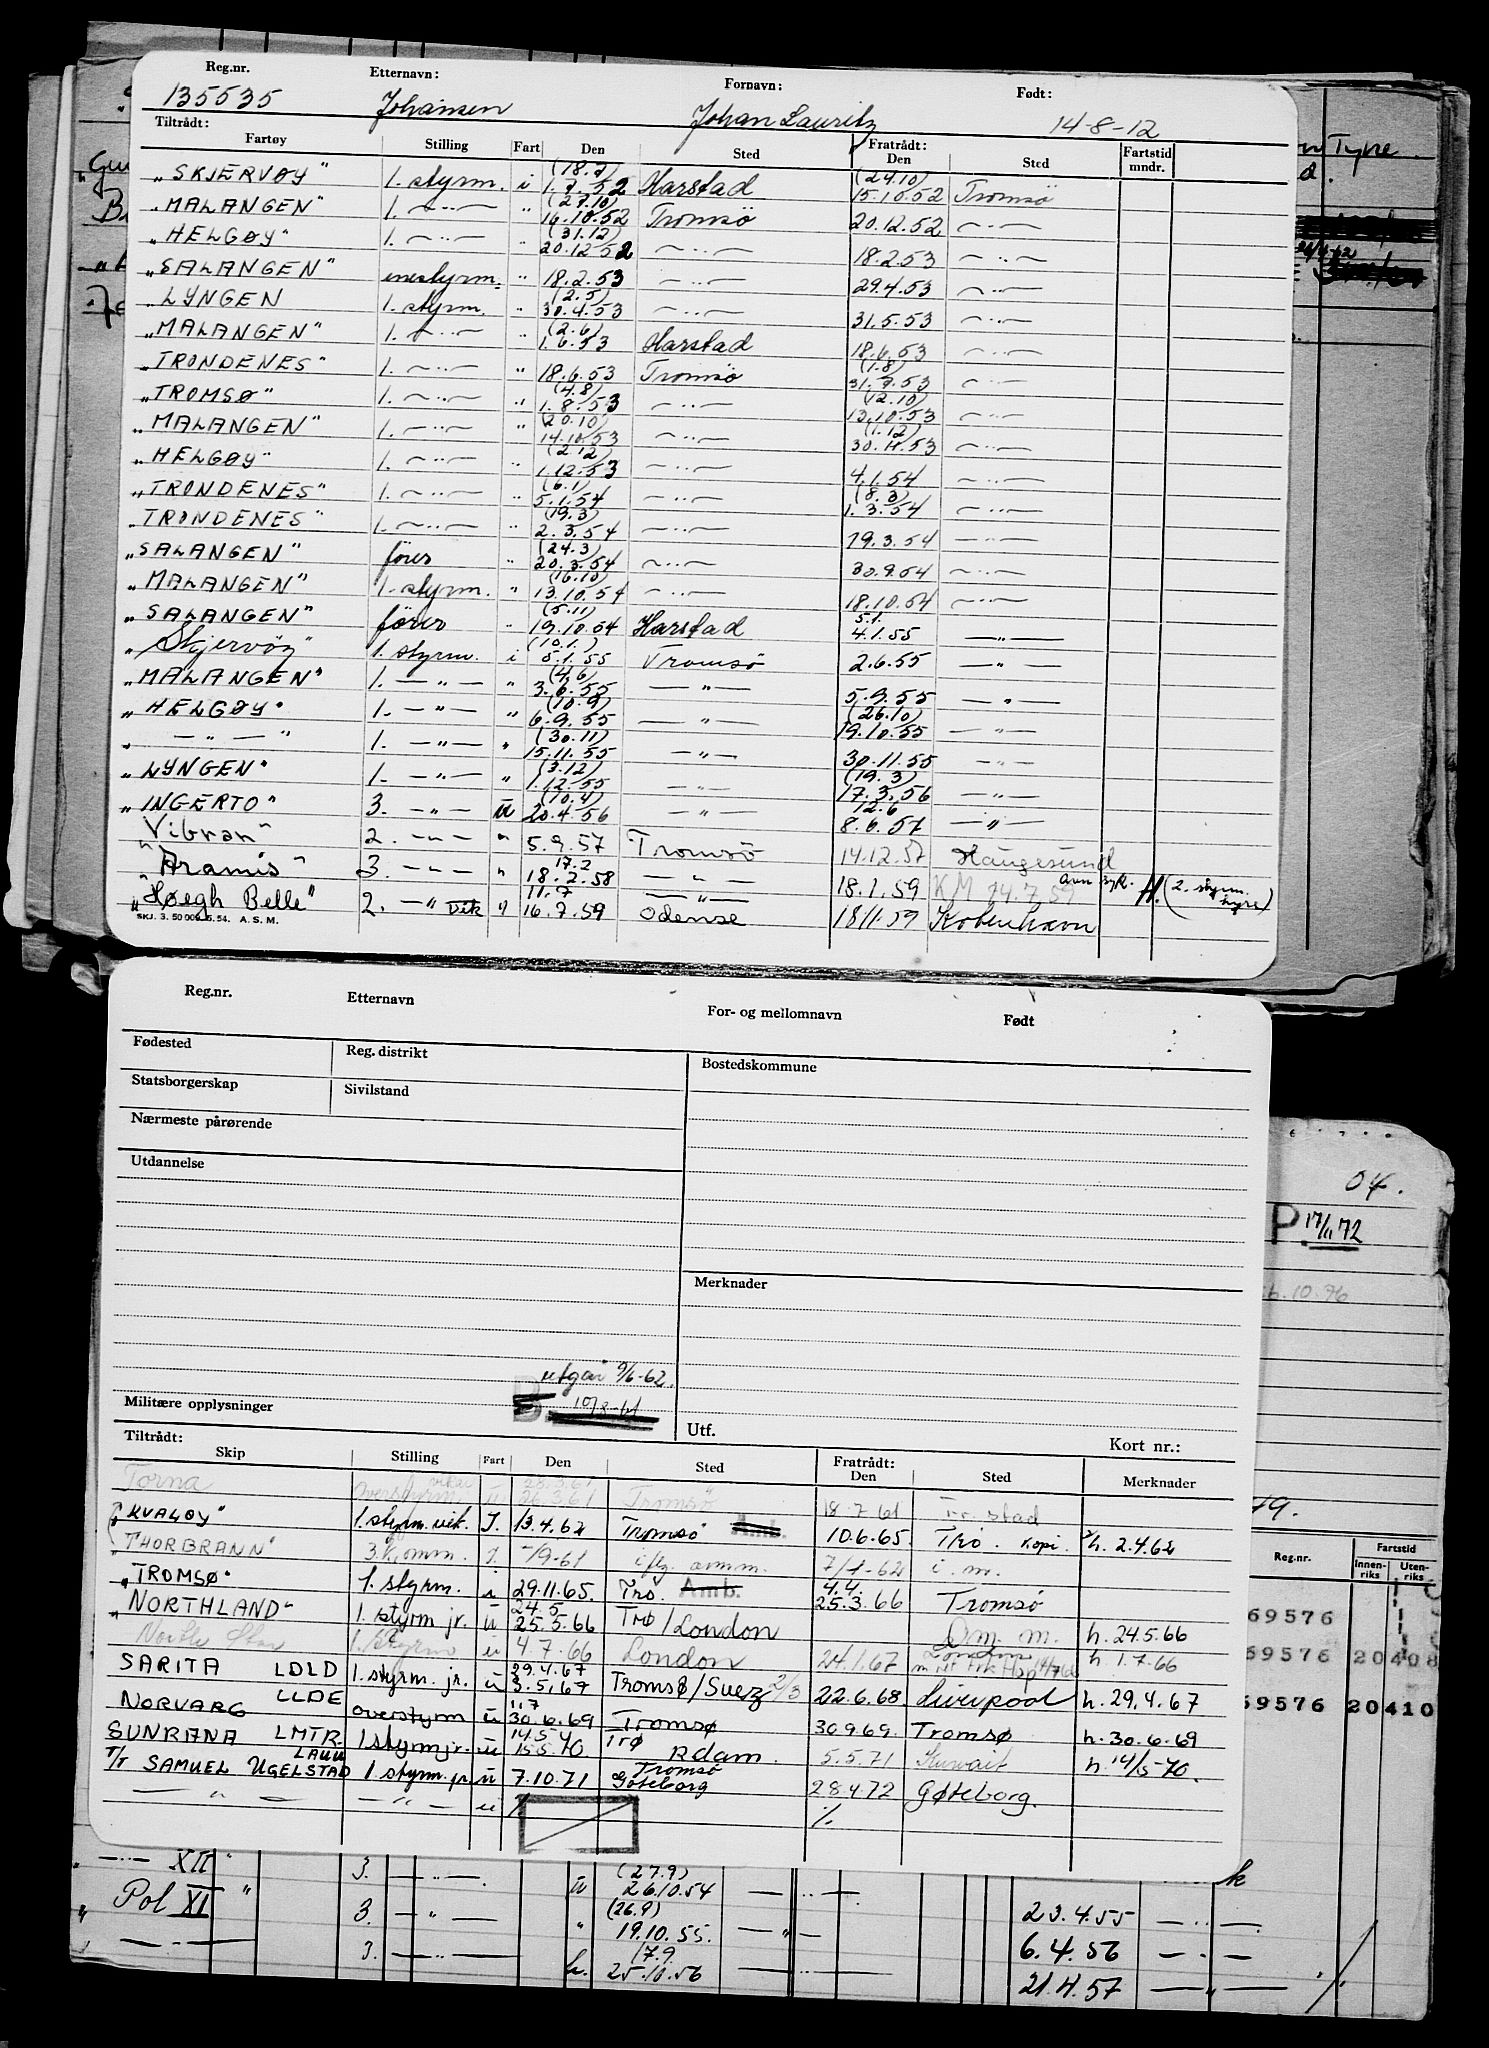 Reg.nr. Etternavn: Fornavn: Født:
135535 Johansen Johan Lauritz 14-8-12
Tiltrådt: Fratrådt:
Fartøy Stilling Fart Den Sted Den Sted Fartstid mndr.
"SKJERVØY" 1. styrm. i (18.7) 1.7.52 Harstad (24.10) 15.10.52 Tromsö
"MALANGEN" 1. —..— " (27.10) 16.10.52 Tromsö 20.12.52 —..—
"HELGØY" 1. —..— " (31.12) 20.12.52 —..— 18.2.53 —..—
"SALANGEN" enestyrm. " 18.2.53 —..— 29.4.53 —..—
LYNGEN 1. styrm. " (2.5) 30.4.53 —..— 31.5.53 —..—
"MALANGEN" 1. —..— " (2.6) 1.6.53 Harstad 18.6.53 —..—
"TRONDENES" 1. —..— " 18.6.53 Tromsö (1.8) 31.7.53 —..—
"TROMSØ" 1. —..— " (4.8) 1.8.53 —..— (12.10) 13.10.53 —..—
"MALANGEN" 1. —..— " (20.10) 14.10.53 —..— (1.12) 30.11.53 —..—
"HELGØY" 1. —..— " (2.12) 1.12.53 —..— 4.1.54 —..—
"TRONDENES" 1. —..— " (6.1) 5.1.54 —..— (8.3) 1.3.54 —..—
TRONDENES" 1. —..— " (19.3) 2.3.54 —..— 19.3.54 —..—
"SALANGEN" förer " (24.3) 20.3.54 —..— 30.9.54 —..—
"MALANGEN" 1. styrm. " (16.10) 13.10.54 —..— 18.10.54 —..—
"SALANGEN" förer " (5.11) 19.10.54 Harstad 5.1. 4.1.55 —"—
"Skjervöy" 1. styrm. i (10.1.) 5.1.55 Tromsö 2.6.55 —"—
"MALANGEN" 1. —"— " (4.6) 3.6.55 —"— 5.9.55 —"—
"HELGØY" 1. —"— " (10.9) 6.9.55 —"— (26.10) 19.10.55
" —"— " 1. —"— " (30.11) 15.11.55 —"— 30.11.55 —"—
"LYNGEN" 1. —"— " (3.12) 1.12.55 —"— (19.3) 17.3.56 —"—
"INGERTO" 3. —"— u (10.4) 20.4.56 —"— 12.6 8.6.57 —"—
"Vibran" 2. —"— " 5.9.57 Tromsö 14.12.57 Haugesund
"Aramis" 3. —"— " 17.2 18.2.58 —"— 18.1.59 KM 14.7.59 H. (2. styrm. hyre)
"Høegh Belle" 2. —" vik " 11.7 16.7.59 Odense 18/11.59 København
SKJ. 3. 50 000. 5. 54. A.S.M.
Reg.nr. Etternavn For- og mellomnavn Født
Fødested Reg. distrikt Bostedskommune
Statsborgerskap Sivilstand
Nærmeste pårørende
Utdannelse
Merknader
utgår 9/6-62.
Militære opplysninger
Utf. Kort nr.:
Tiltrådt: Fratrådt:
Skip Stilling Fart Den Sted Den Sted Merknader
Torna overstyrm. vikar u 26.3.61 Tromsö 18.7.61 Fr.stad
"KVALØY" 1. styrm. vik. I. 13.4.62 Tromsö Amb. 10.6.65. Trø. Kopi. h. 2.4.62
"THORBRANN" 3. Komm. I. -/9-61 iflg. amm. 7/1-62 i. m.
"TROMSØ" 1. styrm. i 29.11.65. Trö. Amb. 4.4. 25.3.66 Tromsö
"NORTHLAND" 1. styrm jr. u 24.5 25.5.66 Trø/London Om. m. h. 24.5.66
North Star 1. Styrm u 4.7.66 London 24.1.67 London h 1.7.66
SARITA LDLD 1. styrm. jr. u 29.4.67 3.5.67 Tromsø/Suez 2/3 22.6.68 Liverpool h. 29.4.67
NORVARG LLDE overstyrm u 1.7 30.6.69 Tromsø 30.9.69. Tromsø h. 30.6.69
SUNRANA LMTR. 1 styrm jr. u 14.5 15.5.70 Trø Rdam. 5.5.71 Kuwait h. 14/5-70.
T/T SAMUEL UGELSTAD LAUU 1. styrm. jr u 7.10.71 Tromsø Göteborg 28.4.72 Gøteborg.
—"— —"— u %. %.
—..— XII" 3. —..— u (27.9) 26.10.54 —..— 23.4.55 —..—
" Pol XI " 3. —"— " (26.9) 19.10.55. —"— 6.4.56 —..—
" —..— 3. —..— u. 17.9 25.10.56 —..— 21.4.57 —"—
Type
d.
04.
P. 17/11 72
.10.76
79.
Reg.nr. Fartstid
Innenriks Utenriks
69576
69576 20408
69576 20410
k